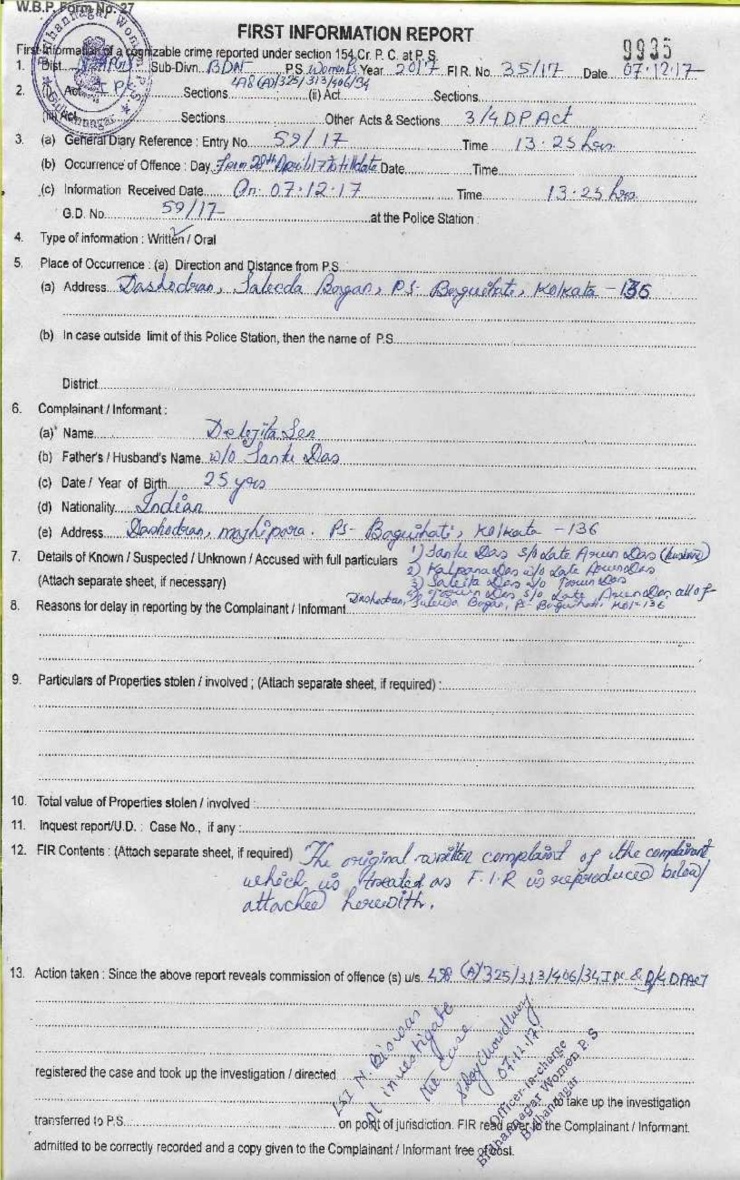 W.B.P. Form No. 27
FIRST INFORMATION REPORT
First Information of a cognizable crime reported under section 154 Cr. P. C. at P. S.
9935
1. Dist. Sub-Divn. BDN P.S. Women P.S. Year 2017 F I R. No. 35/17 Date 07.12.17
498(A)/325/313/406/34
2. (i) Act I P C Sections (ii) Act Sections
(iii) Act Sections Other Acts & Sections 3/4 D P Act
3. (a) General Diary Reference : Entry No. 59/17 Time 13.25 hrs
(b) Occurrence of Offence : Day From 28th April 17 to till date Date Time
(c) Information Received Date On 07.12.17 Time 13.25 hrs
G.D. No. 59/17 at the Police Station :
4. Type of information : Written / Oral
5. Place of Occurrence : (a) Direction and Distance from P.S.
(a) Address Dashodran, Bagan, PS- Baguihati, Kolkata - 136
(b) In case outside limit of this Police Station, then the name of P.S.
District
6. Complainant / Informant :
(a) Name Debojita Sen
(b) Father's / Husband's Name w/o Santu Das
(c) Date / Year of Birth 25 yrs
(d) Nationality Indian
(e) Address Dashodran, majhipara. PS- Baguihati, Kolkata - 136
7. Details of Known / Suspected / Unknown / Accused with full particulars 1) Santu Das s/o Late Arun Das (husband)
2) Kalpana Das w/o Late Arun Das
(Attach separate sheet, if necessary) 3) Das w/o Das
Das s/o Late Arun Das all of-
8. Reasons for delay in reporting by the Complainant / Informant Dashodran, Bagan, PS- Baguihati, Kol-136
9. Particulars of Properties stolen / involved ; (Attach separate sheet, if required) :
10. Total value of Properties stolen / involved :
11. Inquest report/U.D. : Case No., if any :
12. FIR Contents : (Attach separate sheet, if required) The original written complaint of the complainant
which is treated as F.I.R is reproduced below/
attached herewith.
13. Action taken : Since the above report reveals commission of offence (s) u/s. 498 (A)/325/313/406/34 IPC & 3/4 DP Act
LSI N. Biswas
to investigate
the case
07.12.17
Officer-in-charge
Bidhannagar Women P.S
Bidhannagar
registered the case and took up the investigation / directed
to take up the investigation
transferred to P.S. on point of jurisdiction. FIR read over to the Complainant / Informant.
admitted to be correctly recorded and a copy given to the Complainant / Informant free of cost.